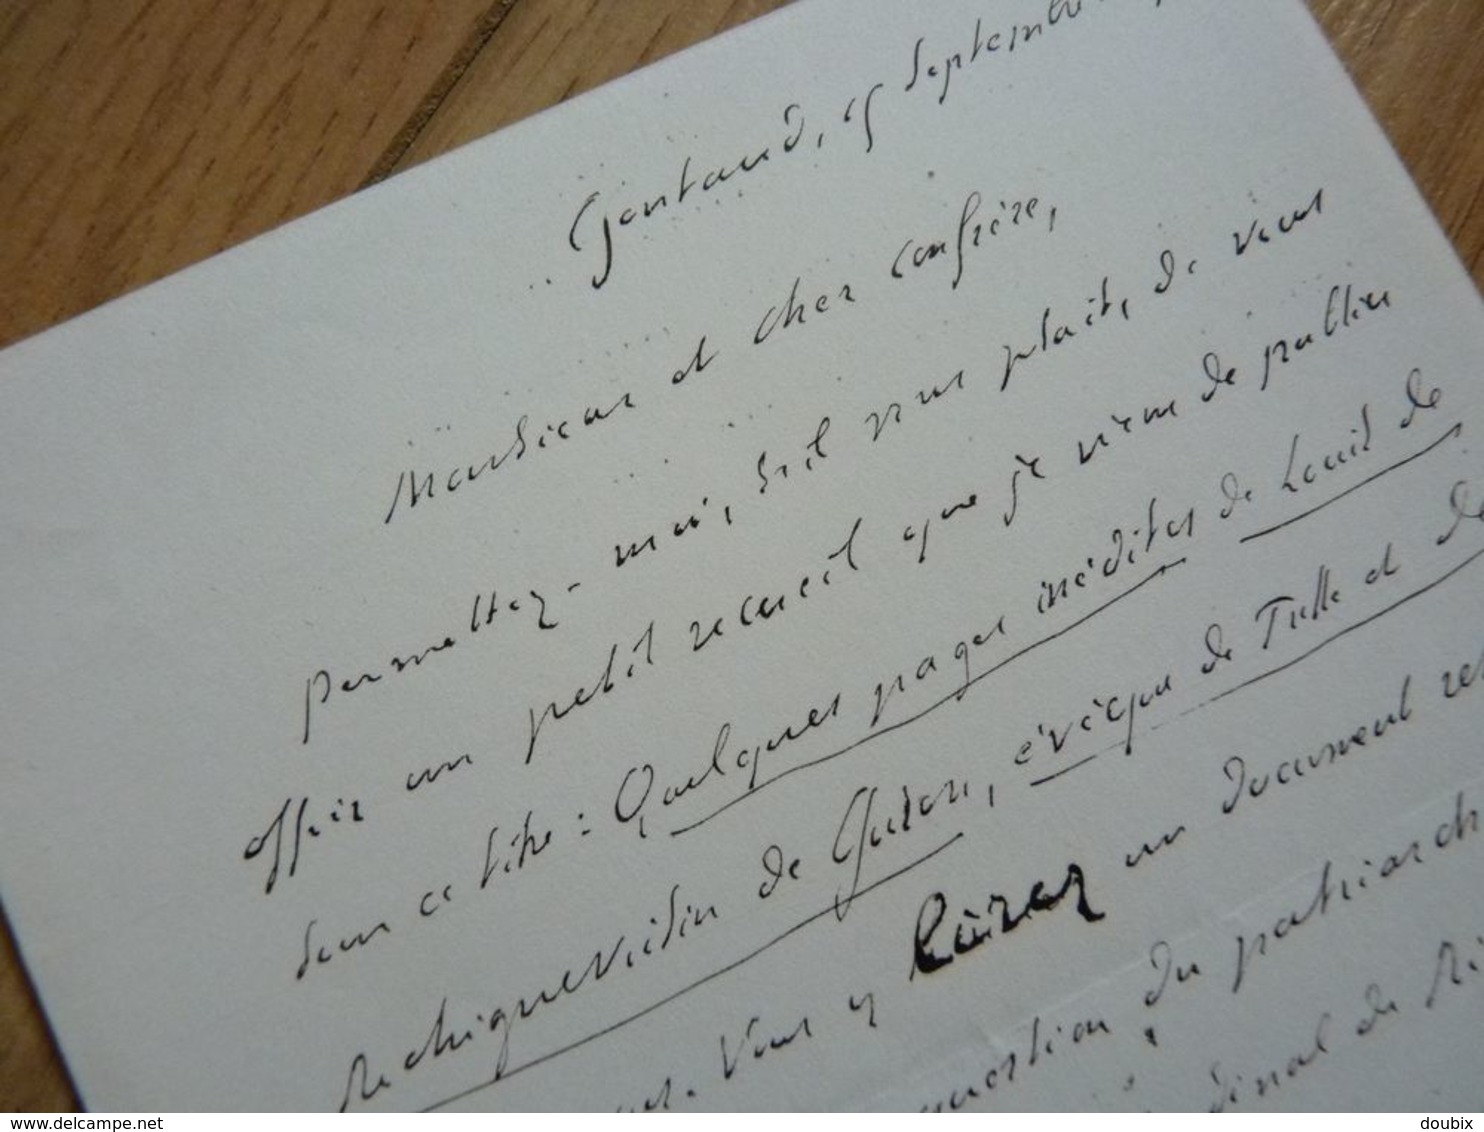 Gontaud, 15 Septembre
Monsieur et cher confrère,
permettez-moi, s'il vous plait, de vous
offrir un petit recueil que je viens de publier
sous ce titre : Quelques pages inédites de Louis de
Rechignevoisin de Guron, évêque de Tulle et de
Vous y lirez un document
question du patriarch
dinal de Ri
© www.delcampe.net
doubix